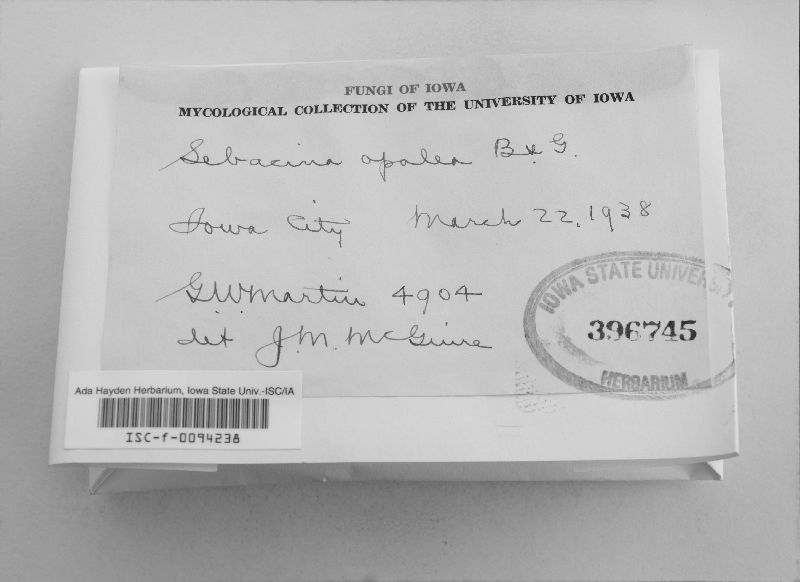 FUNGI OF IOWA
MYCOLOGICAL COLLECTION OF THE UNIVERSITY OF IOWA
Sebacina opalea B & G.
Iowa City March 22, 1938
G.W. Martin 4904
det J.M. McGuire
IOWA STATE UNIVERSITY
396745
HERBARIUM
Ada Hayden Herbarium, Iowa State Univ.-ISC/IA
ISC-f-0094238